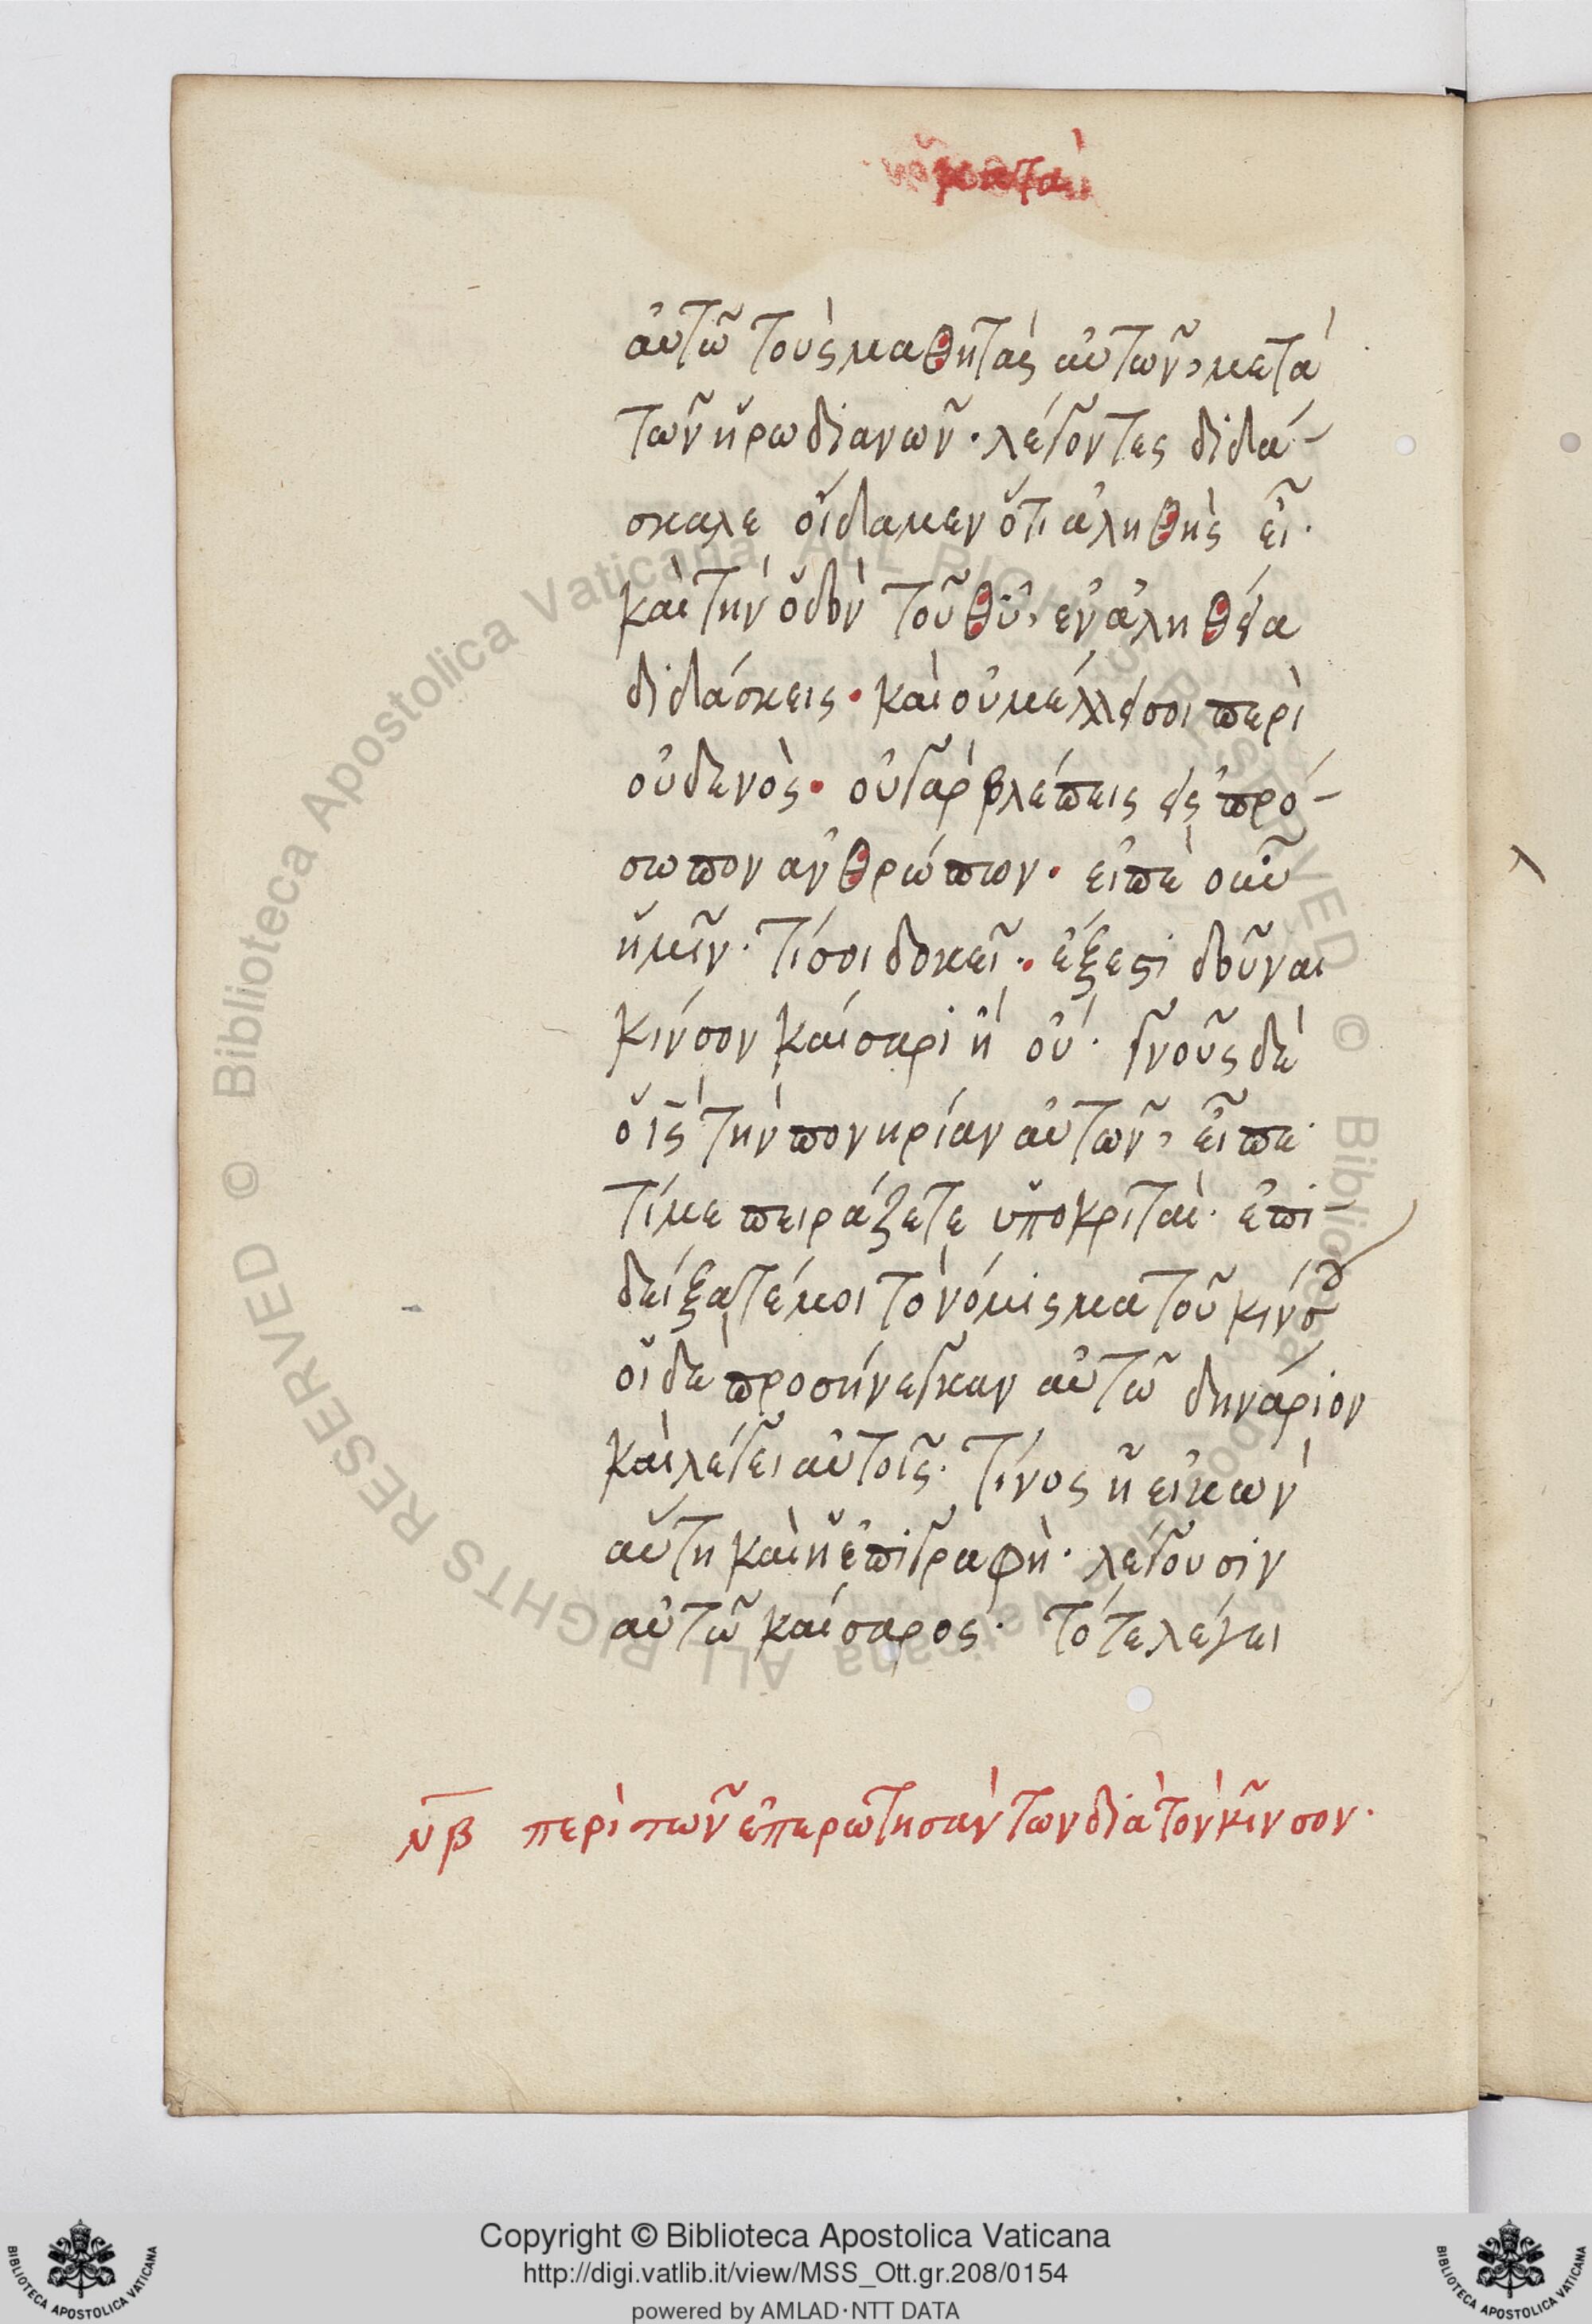 αὐτῶ τοὺς μαθητὰς αὐτῶν, μετὰ
τῶν ἡρωδιανῶν· λέγοντες διδά-
σκαλε οἴδαμεν ὅτι ἀληθὴς εἶ·
καὶ τὴν ὁδὸν τοῦ θ̅υ̅, ἐν ἀληθεία
διδάσκεις· καὶ οὐ μέλλει σοι περὶ
οὐδενὸς· οὐ γὰρ βλέπεις εἰς πρό-
σωπον ἀνθρώπων· εἰπὲ οὖν
ἡμῖν· τί σοι δοκεῖ· ἔξεστι δοῦναι
κίνσον καίσαρι ἢ οὐ· γνοὺς δὲ
ὁ ι̅ς̅ τὴν πονηρίαν αὐτῶν, εἶπε·
τί με πειράζετε ὑποκριταὶ· ἐπι-
δείξατέ μοι τὸ νόμισμα τοῦ κίνσου
οἱ δὲ προσήνεγκαν αὐτῶ δηνάριον
καὶ λέγει αὐτοῖς· τίνος ἡ εἰκὼν
αὕτη καὶ ἡ ἐπιγραφὴ· λέγουσιν
αὐτῶ καίσαρος· τότε λέγει
ν̅β̅ περὶ τῶν ἐπερωτησάντων διὰ τὸν κῖνσον·
Copyright © Biblioteca Apostolica Vaticana
http://digi.vatlib.it/view/MSS_Ott.gr.208/0154
powered by AMLAD·NTT DATA